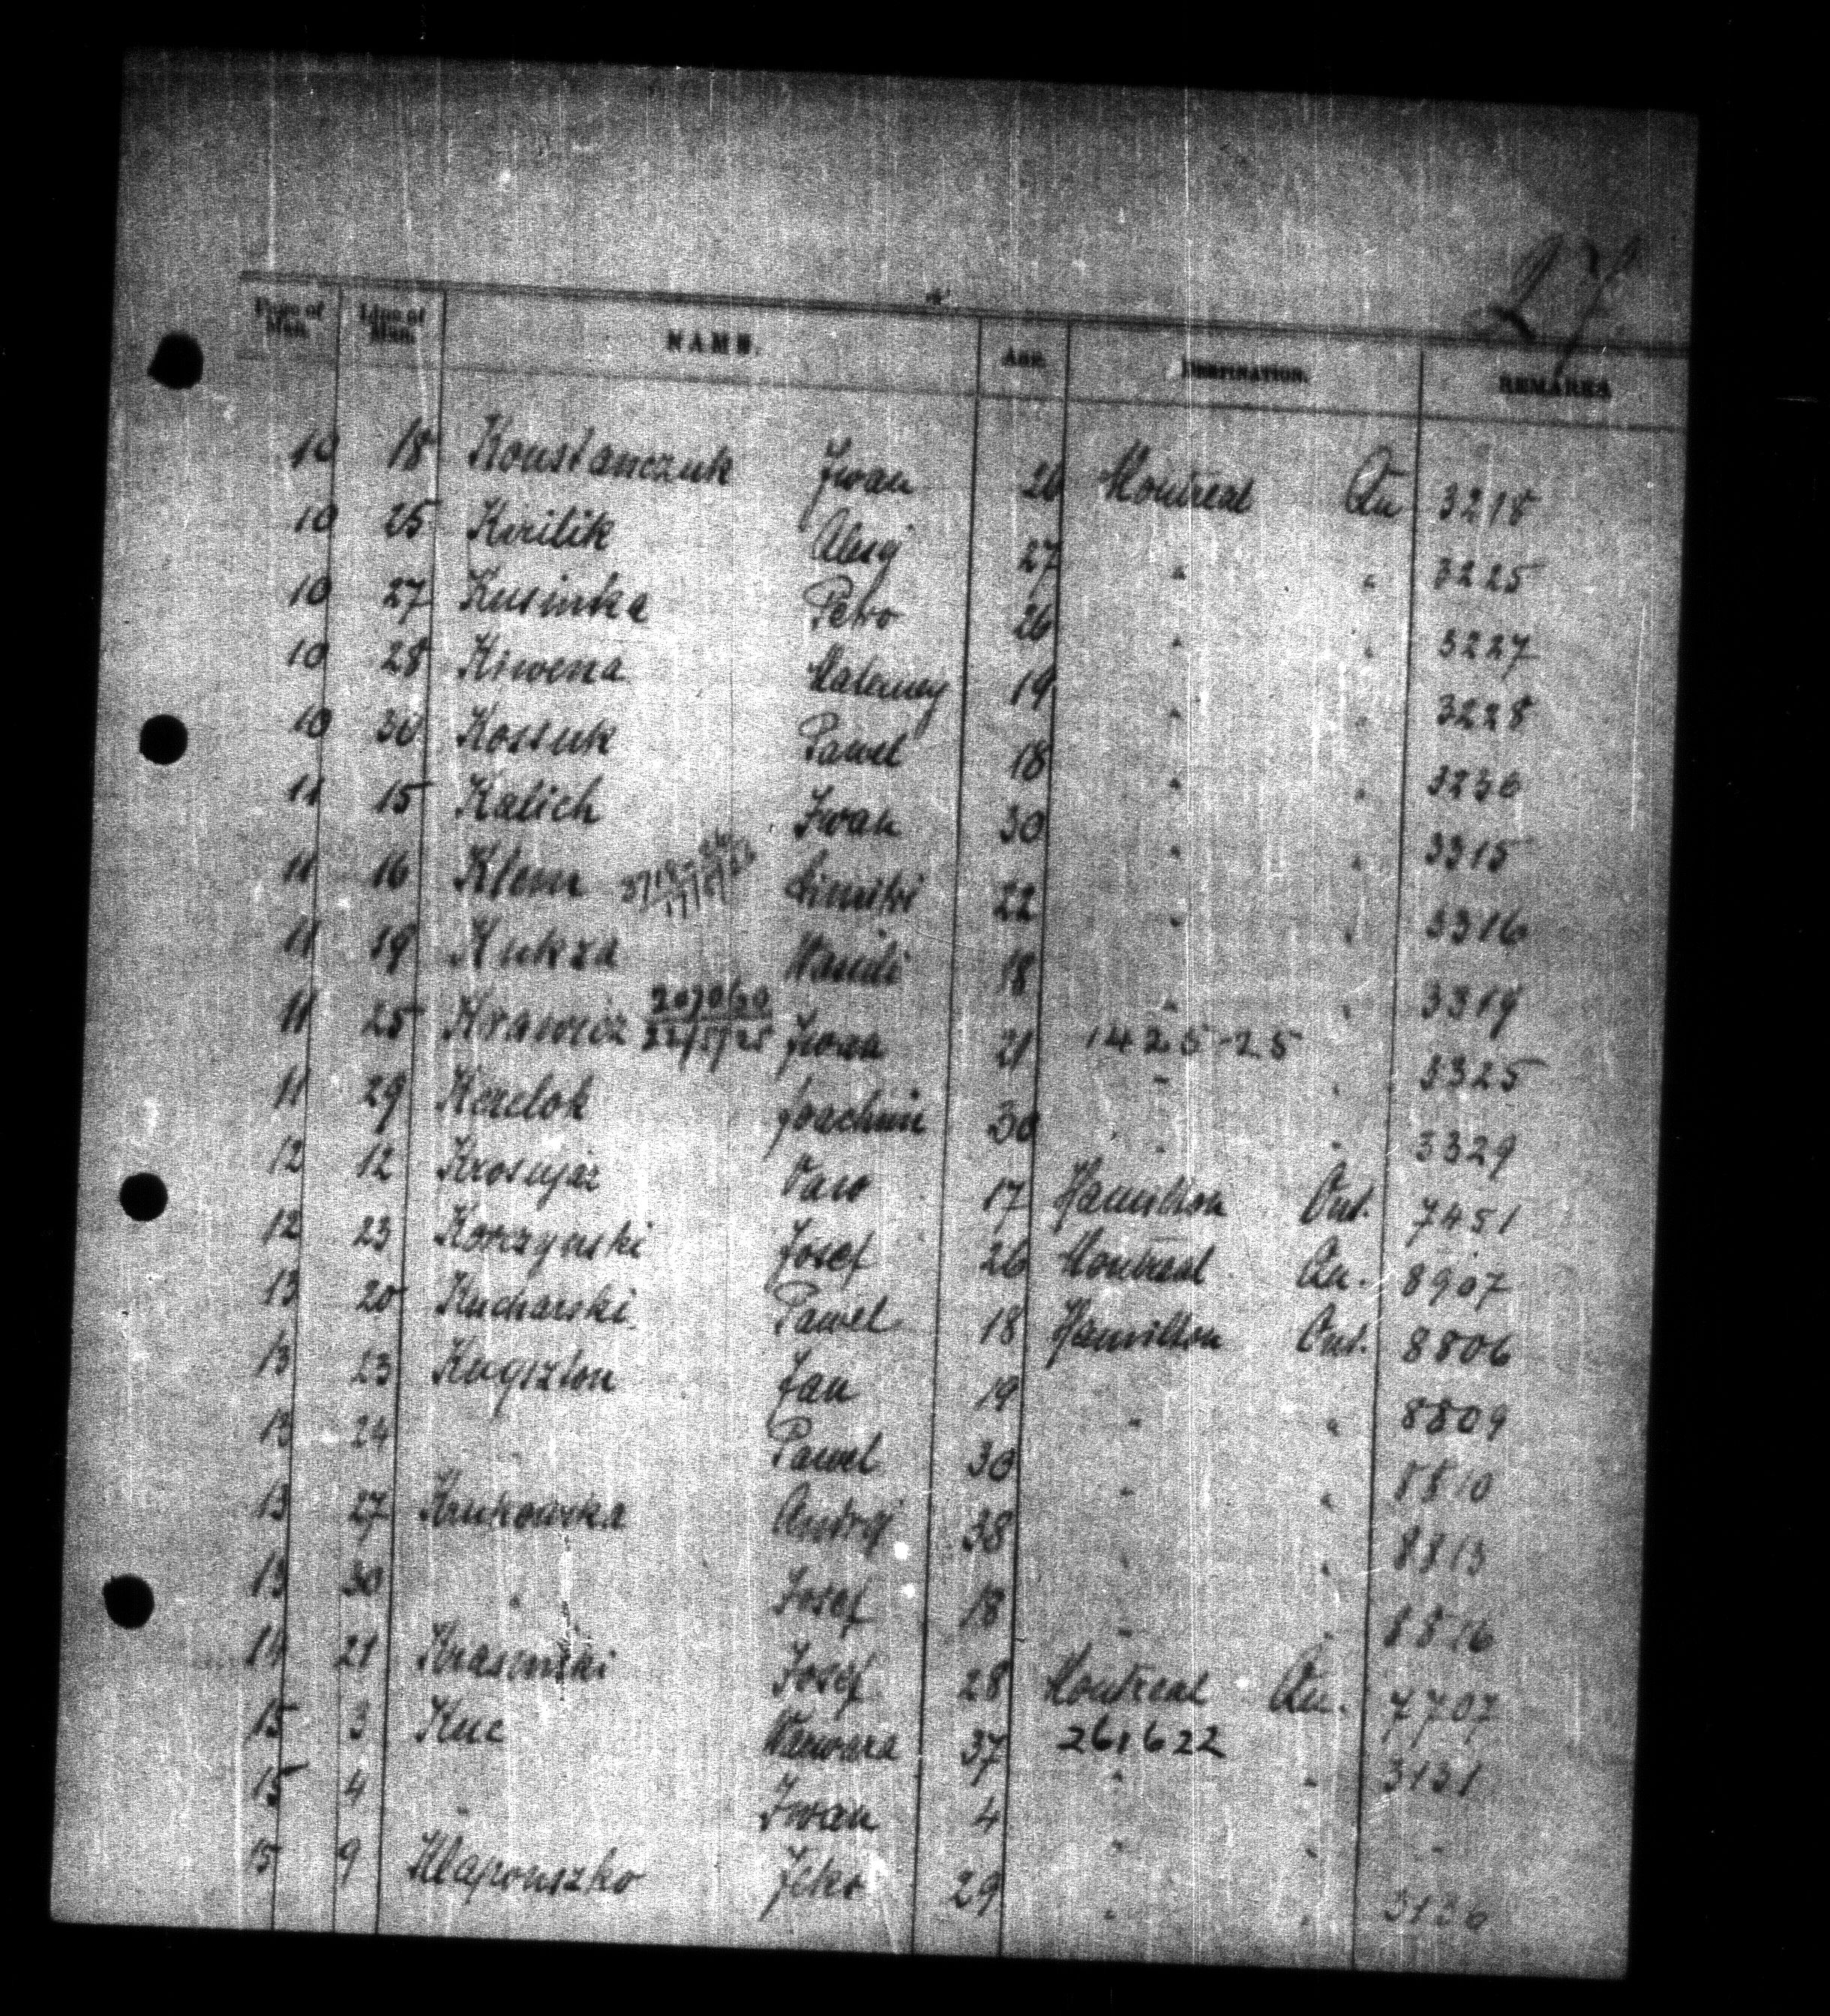 27
Page of Man. Line of Man. NAME. AGE. DESTINATION. REMARKS
10 18 Konstanczuk Iwan 26 Montreal Qu 3218
10 25 Kirilik Alexij 27 " " 3225
10 27 Kusinka Petro 26 " " 3227
10 28 Kiwena 19 " " 3228
10 30 Kossuk Pawel 18 " " 3230
11 15 Kalich Iwan 30 " " 3315
11 16 Klem Dimitri 22 " " 3316
11 19 Kukza Wasili 18 " " 3319
11 25 Krawicz 22/5/25 21 1425-25 " " 3325
11 29 Kozelok Joachim 30 " " 3329
12 12 17 Hamilton Ont. 7451
12 23 Korczynski Josef 26 Montreal Qu. 8907
13 20 Kucharski Pawel 18 Hamilton Ont. 8806
13 23 Kugszton Jan 19 " " 8809
13 24 " Pawel 30 " " 8810
13 27 Krukowska Andrej 38 " " 8813
13 30 " Josef 18 " " 8816
14 21 Krasinski Josef 28 Montreal Qu. 7707
15 3 Kuc Warwara 37 261622 " " 3131
15 4 " Iwan 4 " " "
15 9 Klaponszko 29 " " 3136